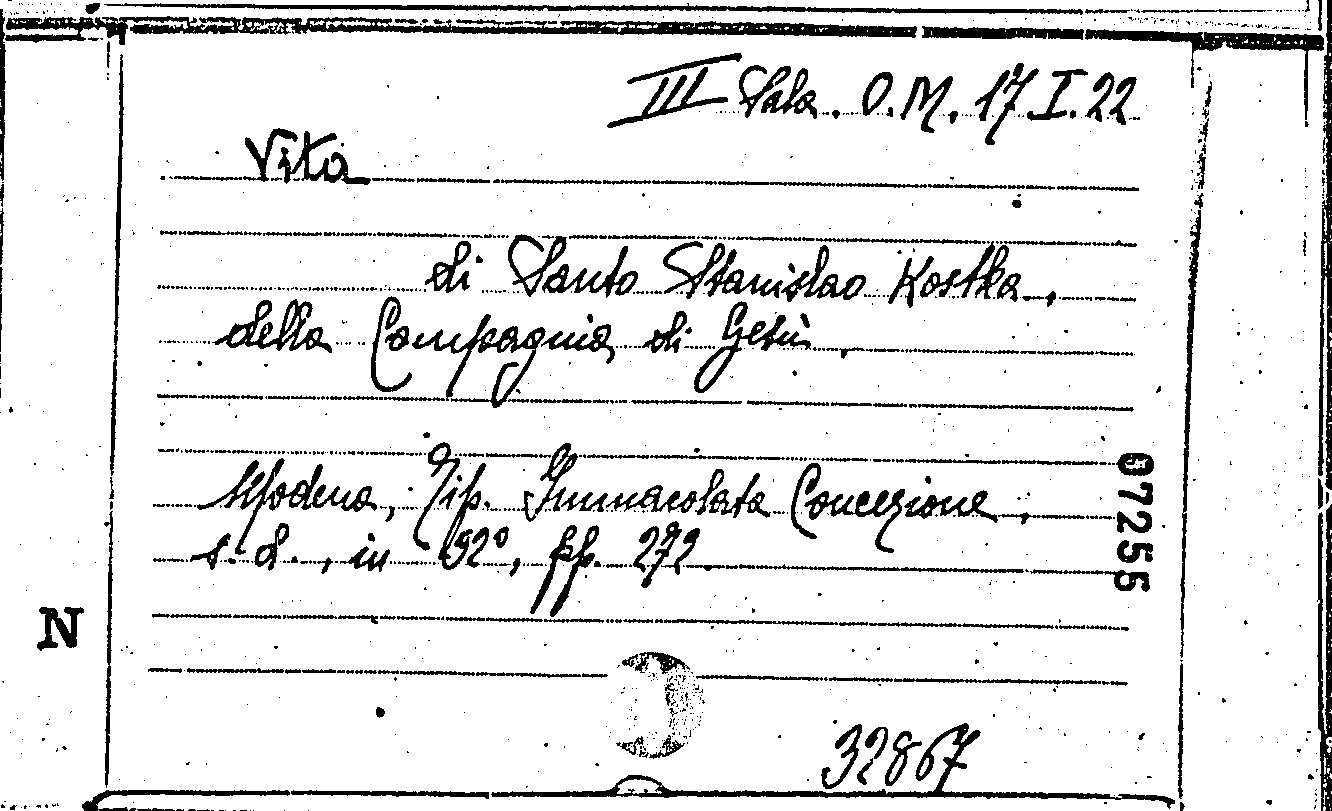 III Sala. O.M. 17.I.22
Vita
di Santo Stanislao Kostka,
della Compagnia di Gesù.
Modena, Tip. Immacolata Concezione,
s.d., in 32°, pp. 272.
07255
N
32867